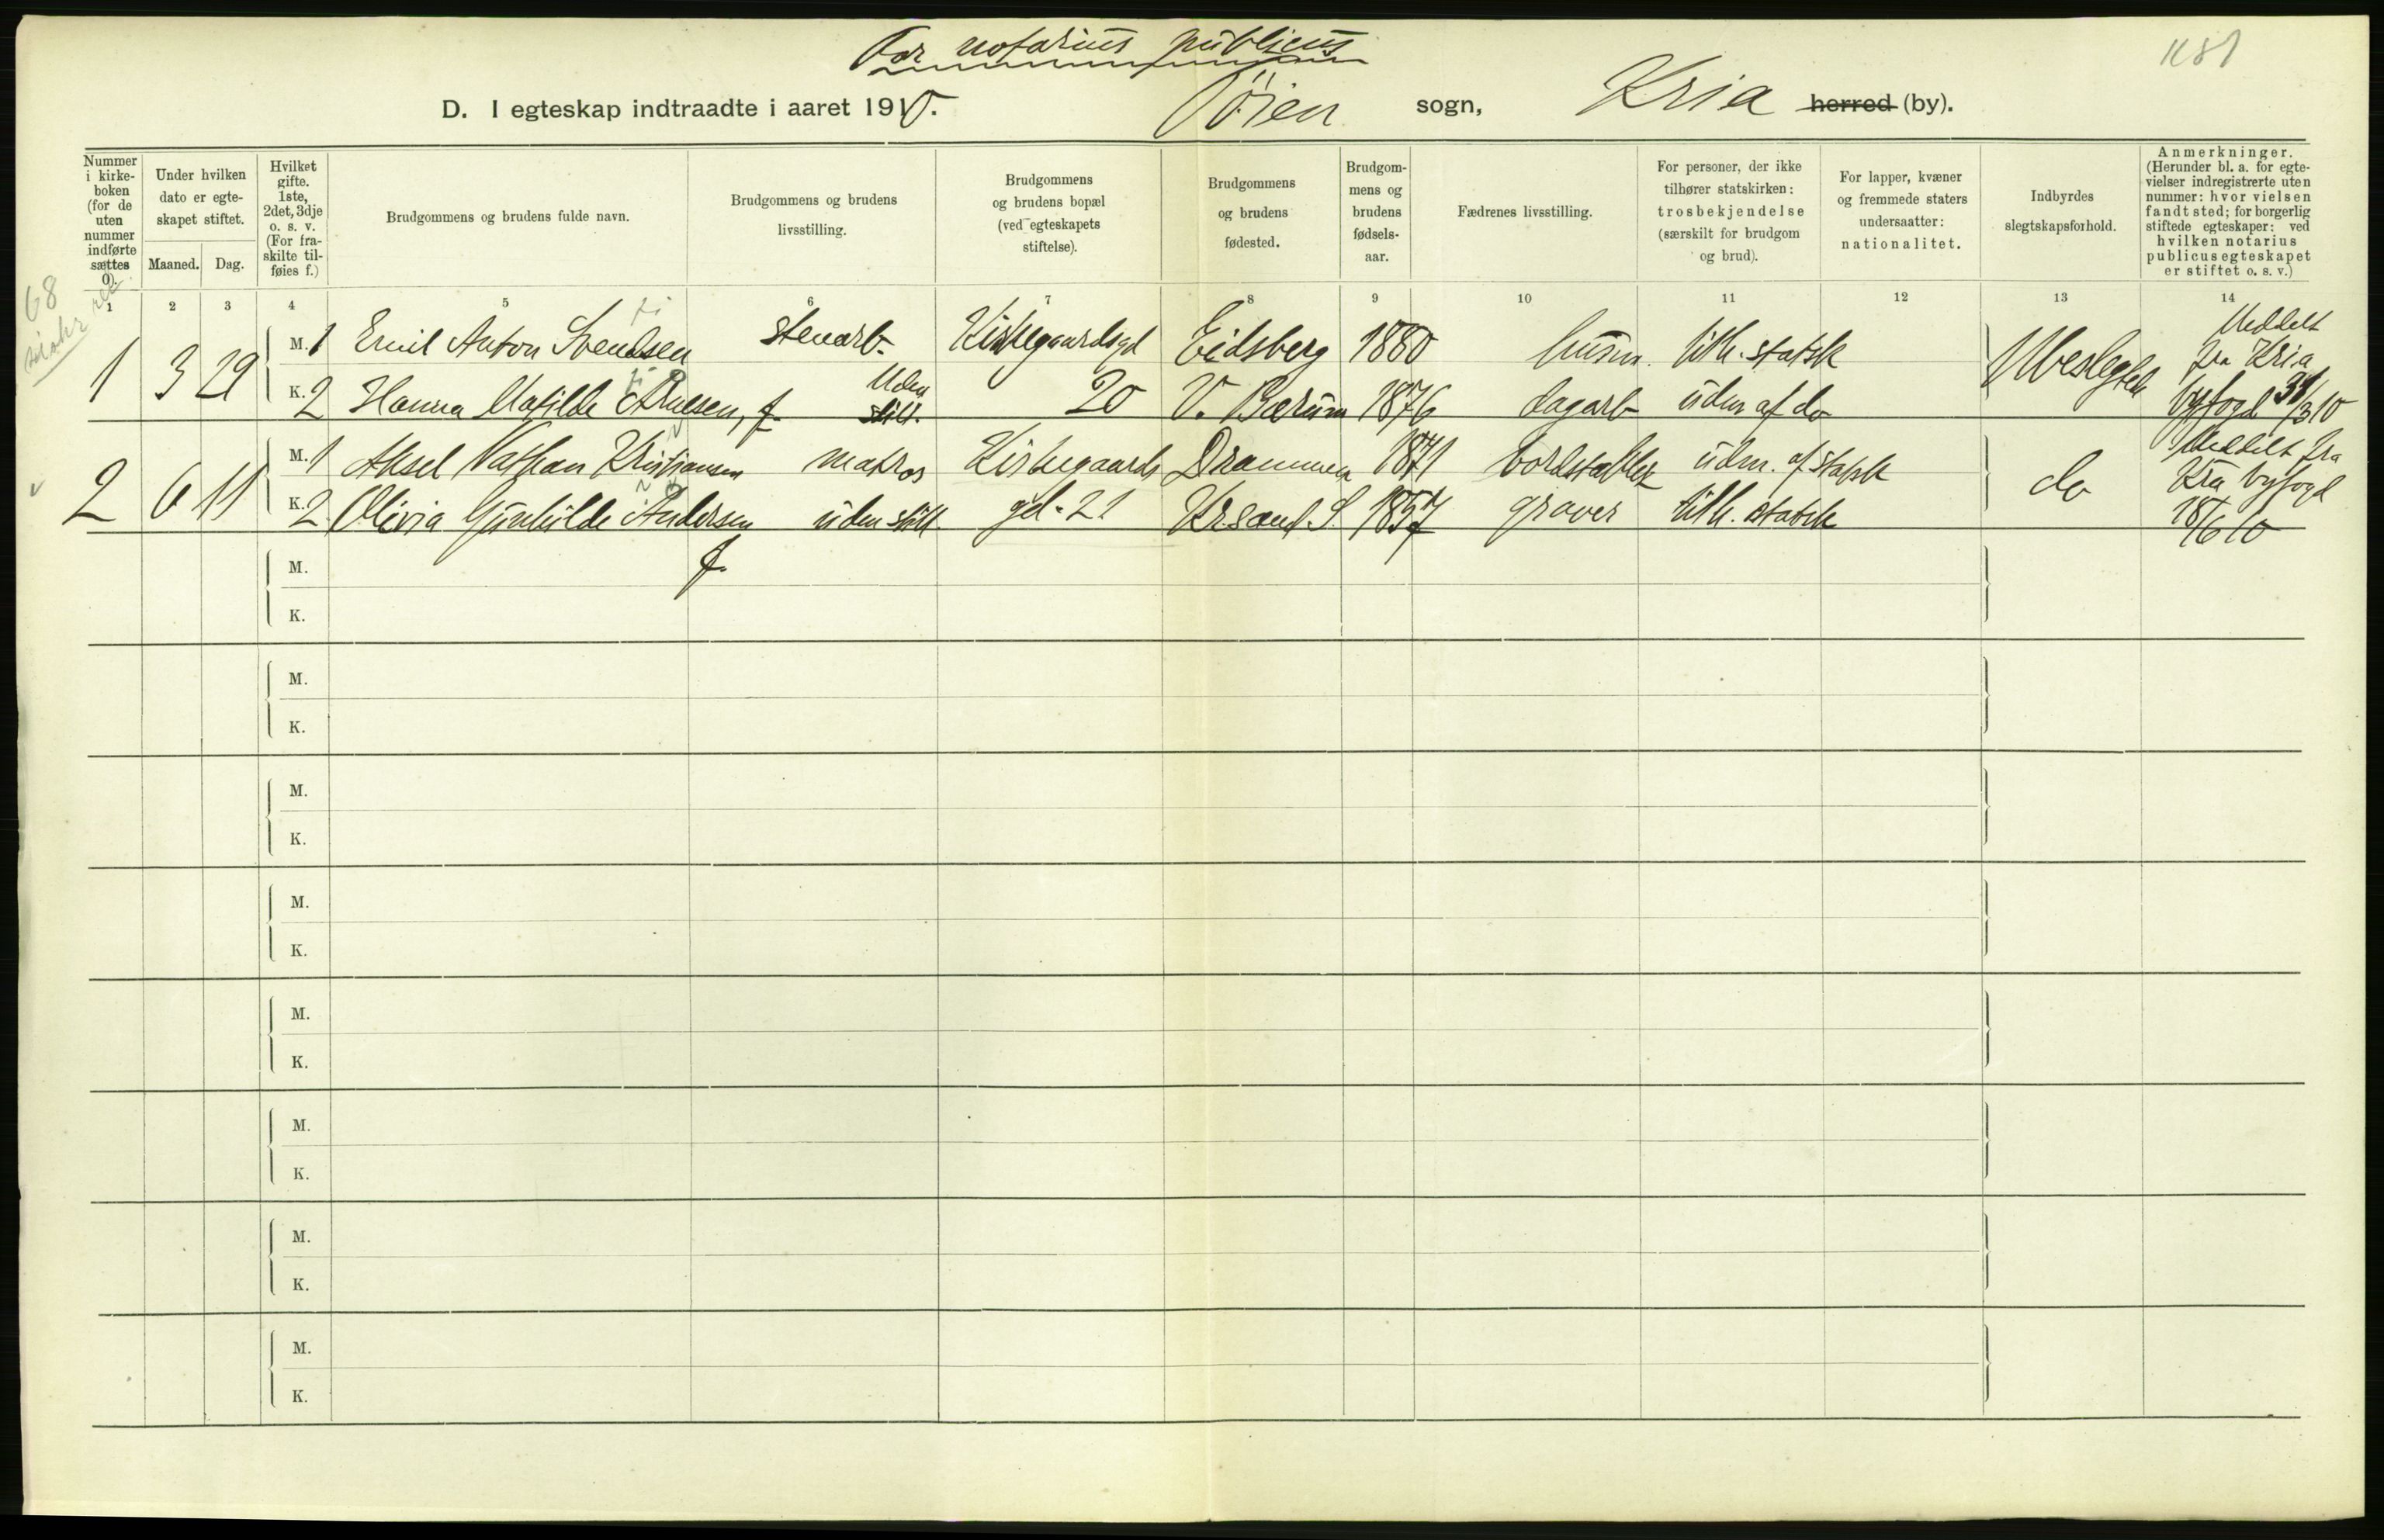 For notarius publicus
1181
D. I egteskap indtraadte i aaret 1910. Töien sogn, Kria herred (by).
Nummer i kirkeboken (for de uten nummer indførte sættes 0).
Under hvilken dato er egteskapet stiftet.
Maaned. Dag.
Hvilket gifte. 1ste, 2det, 3dje o. s. v. (For fraskilte tilføies f.)
Brudgommens og brudens fulde navn.
Brudgommens og brudens livsstilling.
Brudgommens og brudens bopæl (ved egteskapets stiftelse).
Brudgommens og brudens fødested.
Brudgommens og brudens fødselsaar.
Fædrenes livsstilling.
For personer, der ikke tilhører statskirken: trosbekjendelse (særskilt for brudgom og brud).
For lapper, kvæner og fremmede staters undersaatter: nationalitet.
Indbyrdes slegtskapsforhold.
Anmerkninger. (Herunder bl. a. for egtevielser indregistrerte uten nummer: hvor vielsen fandt sted; for borgerlig stiftede egteskaper: ved hvilken notarius publicus egteskapet er stiftet o. s. v.)
1 2 3 4 5 6 7 8 9 10 11 12 13 14
68
1 3 29 M. 1 Emil Anton Svendsen stenarb. Kirkegaardsgd Eidsberg 1880 husm. tilh. statsk Ubeslegtede Meddelt fra Kria byfogd 31/3 10
K. 2 Hanna Matilde f. uden still. 20 V. Bærum 1876 dagarb udm af do
2 6 11 M. 1 Aksel Nathan Kristiansen matros Kirkegaards Drammen 1871 bordstabler udm. af statsk do Meddelt fra Kra byfogd 18/6 10
K. 2 Olivia Gunhilde Andersen uden still. gd. 21 Krsand S. 1857 graver tilh. statsk
f.
M.
K.
M.
K.
M.
K.
M.
K.
M.
K.
M.
K.
M.
K.
M.
K.